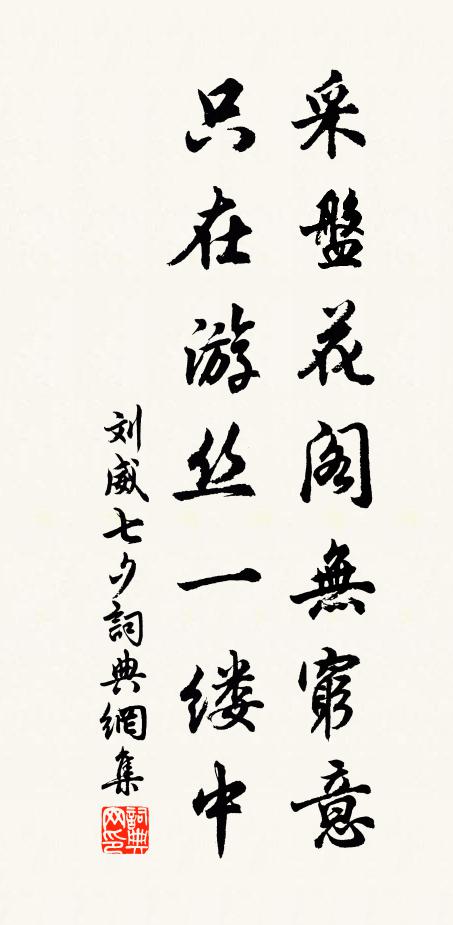 采盤花阁無窮意
只在游丝一缕中
刘威七夕詞典網集
詞典网印